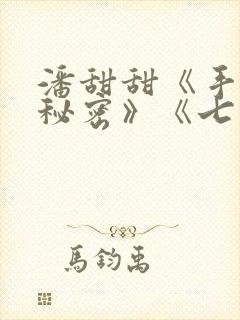 潘甜甜《手
秘密》《七
馬鈞禹